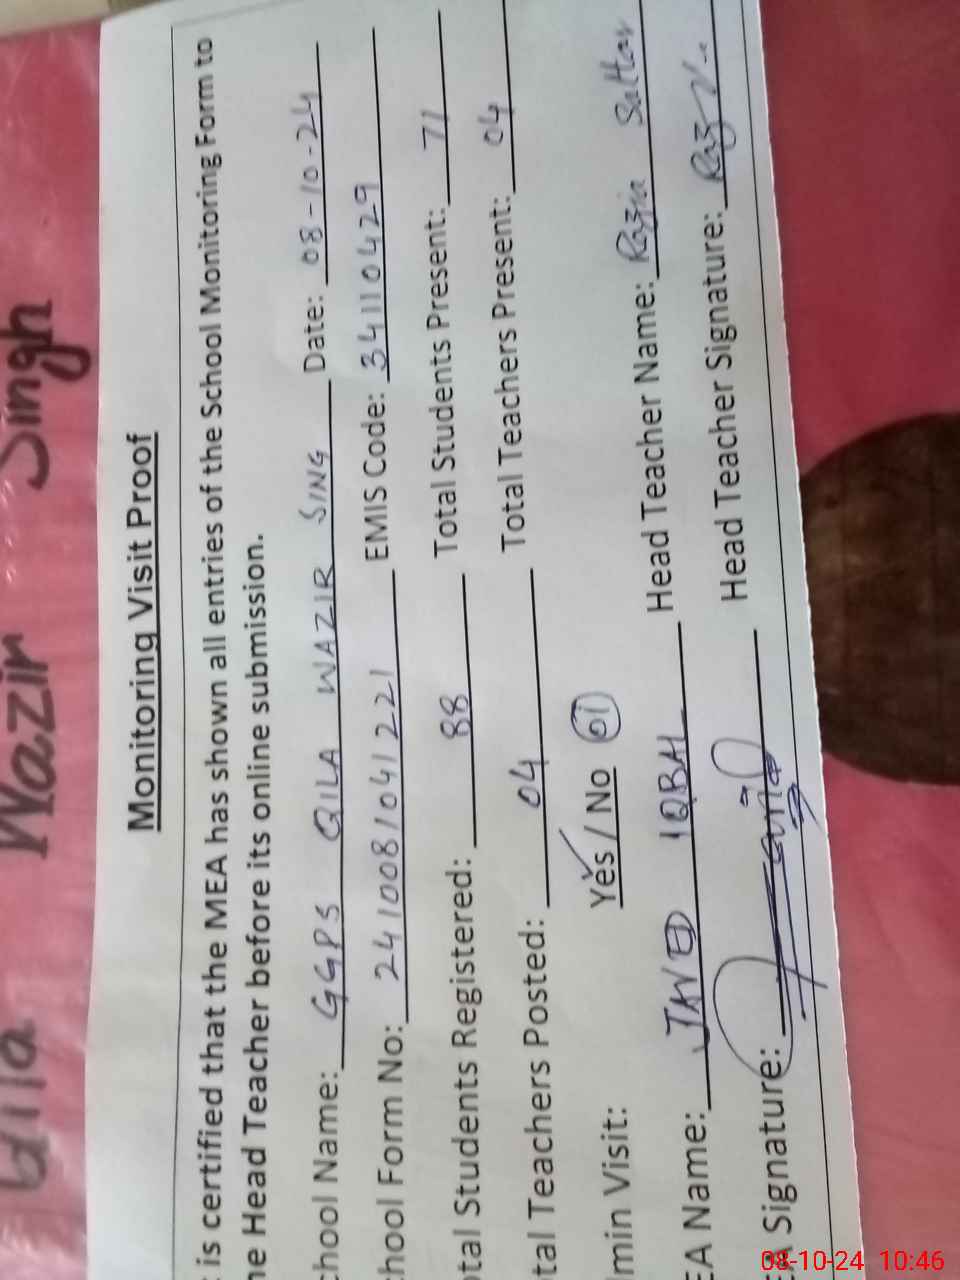 Qila Wazir Singh
Monitoring Visit Proof
is certified that the MEA has shown all entries of the School Monitoring Form to
he Head Teacher before its online submission.
chool Name: GGPS QILA WAZIR SING Date: 08-10-24
chool Form No: 2410081041221 EMIS Code: 34110429
otal Students Registered: 88 Total Students Present: 71
otal Teachers Posted: 04 Total Teachers Present: 04
lmin Visit: Yes / No 01
EA Name: JAVED IQBAL Head Teacher Name: Razia Sattar
A Signature: Head Teacher Signature:
08-10-24 10:46